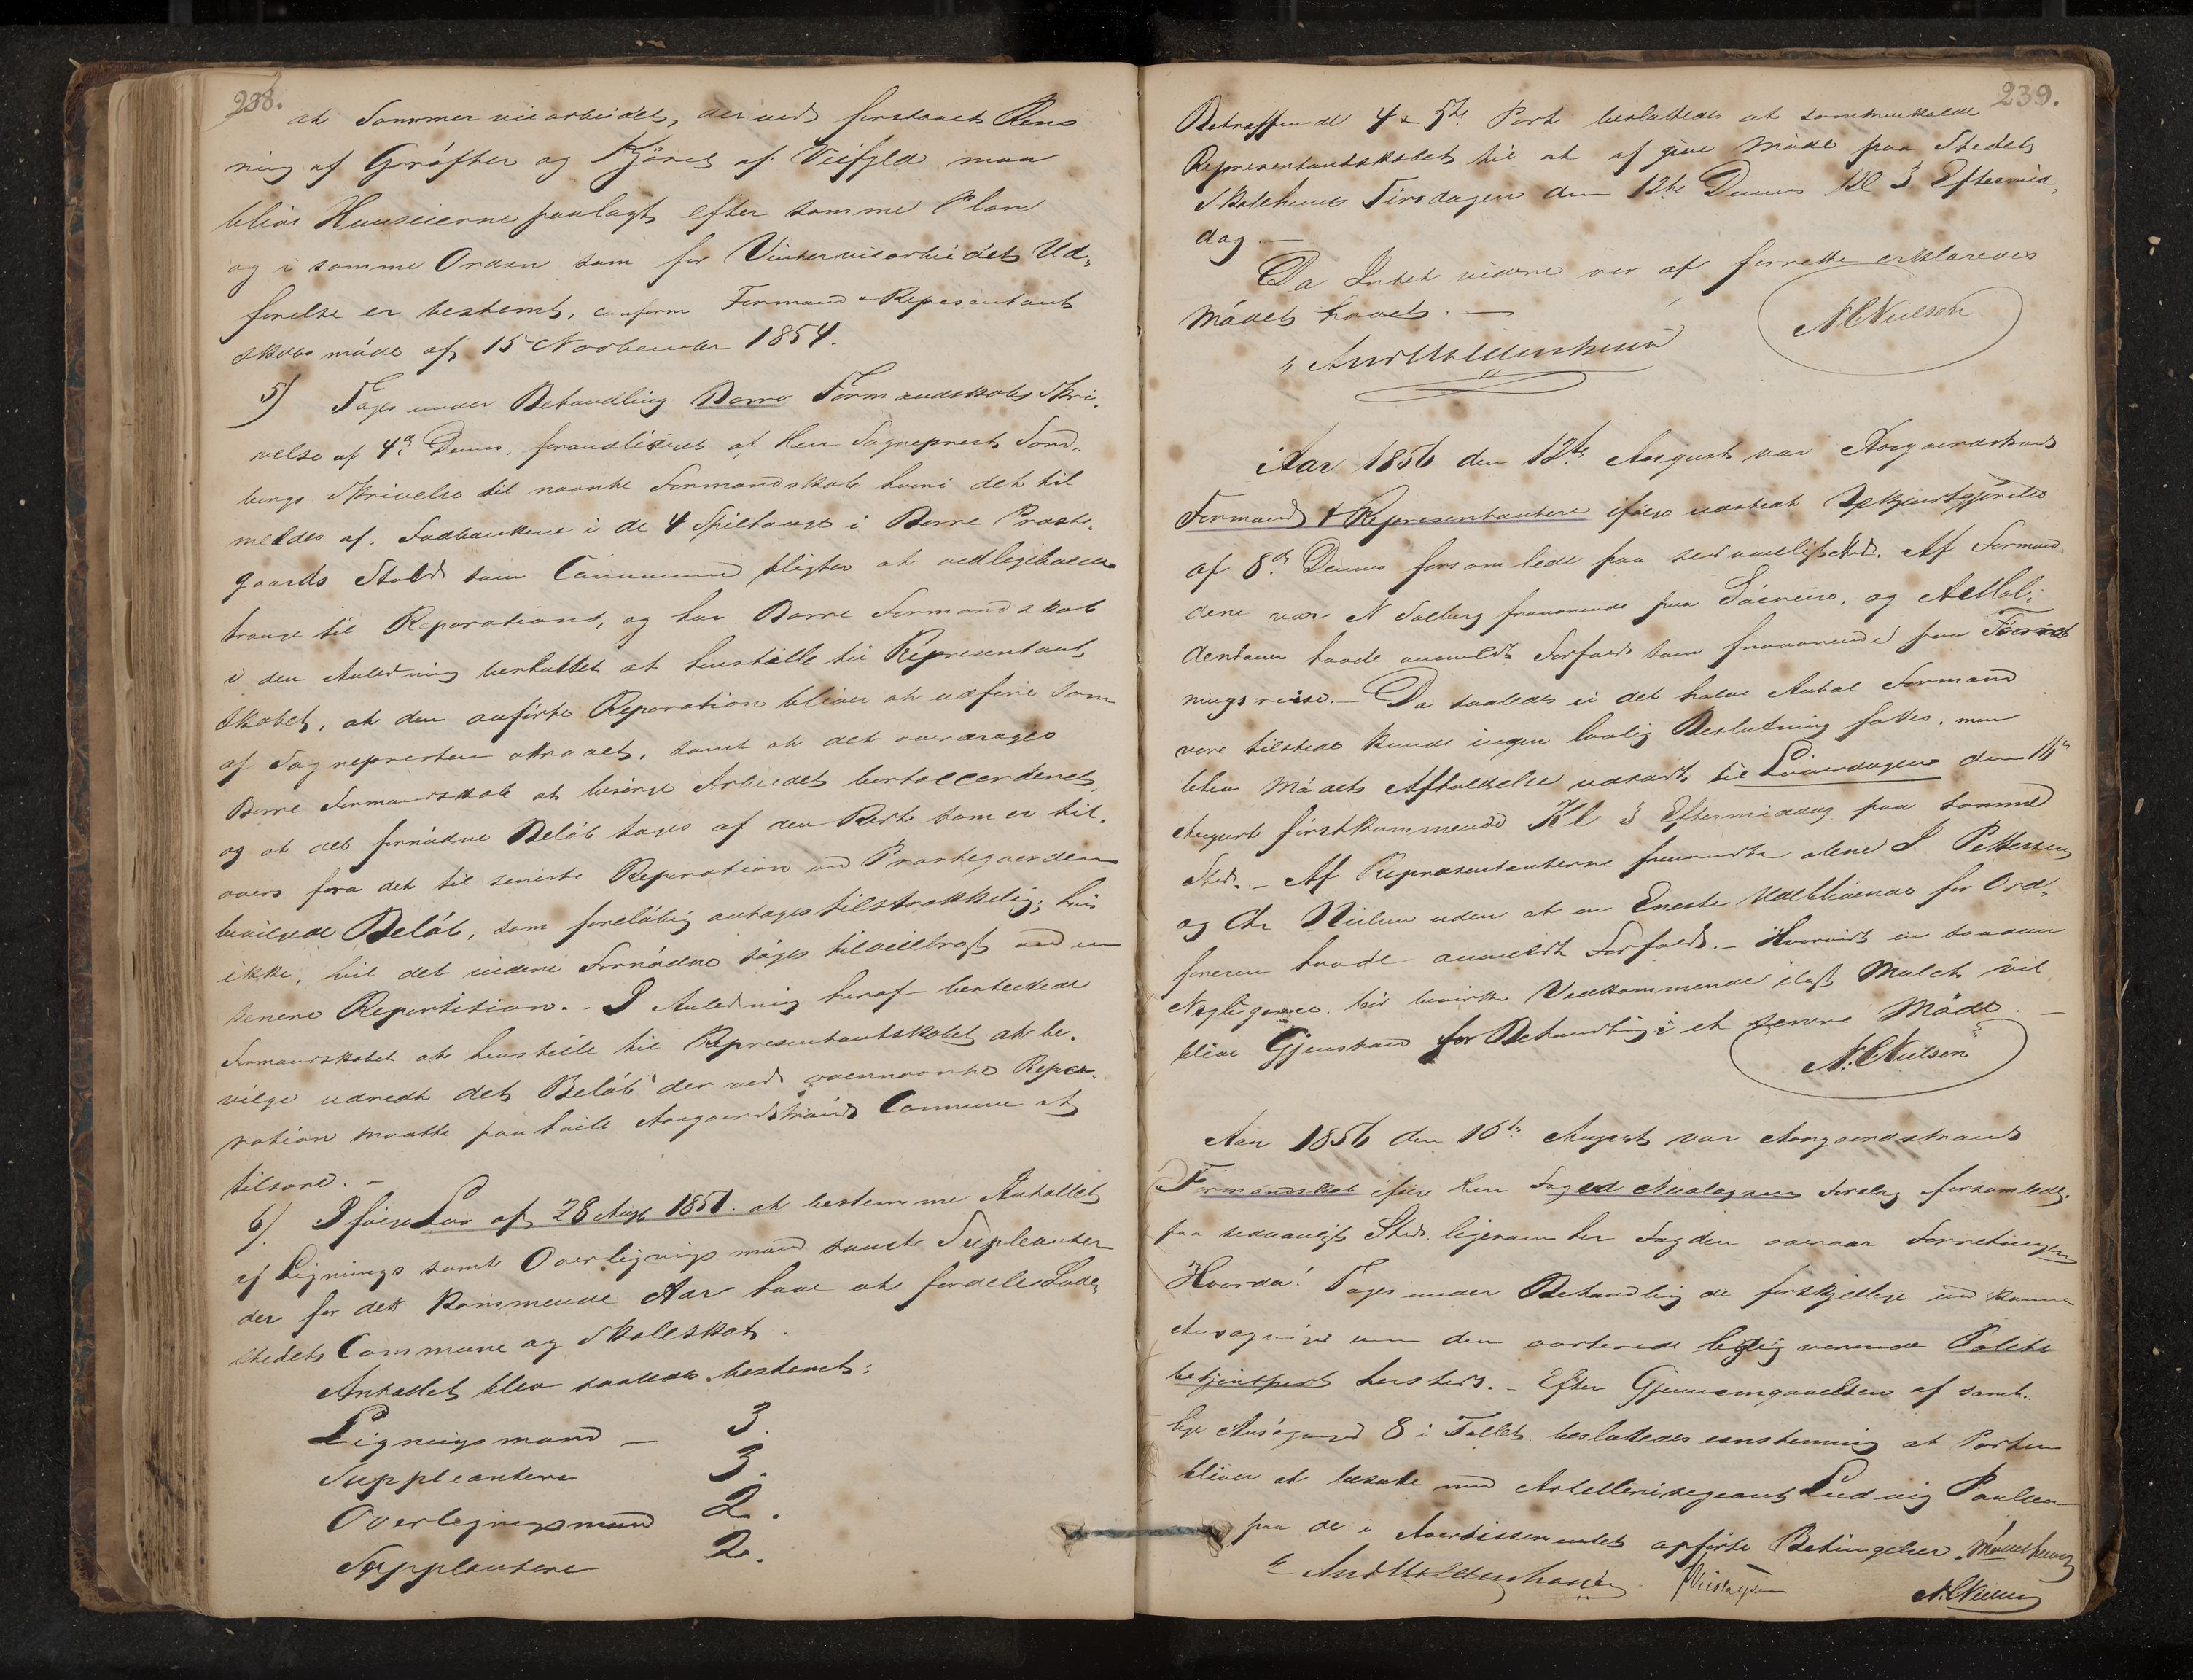 238.
at Sommerveiarbeidet, derved forstaaet Rens
ning af Gröfter og Kjörsel af Veifyld maa
blive Huuseierne paalagt efter samme Plan
og i samme Orden som for Vinterveiarbeidet Ud-
förelse er bestemt, conform Formand & Representant
skabs möde af 15 November 1854.
5) Toges under Behandling Borre Formandskabs Skri-
velse af 4de Dennes, foranlediget af Herr Sogneprest
bergs Skrivelse til nævnte Formandskab hvori det til
meldes at i de 4 Spiltouge i Borre Præste-
gaards Stald som Communen pligter at vedligeholde
trænge til Reparations, og har Borre Formandskab
i den Anledning besluttet at henstille til Representant
skabet, at den anförte Reparation bliver at udföre som
af Sognepresten attraaet, samt at det overdrages
Borre Formandskab at besörge Arbeidet bortaccorderet,
og at det fornödne Belöb tages af den Rest som er til-
overs fra det til seneste Reparation ved Præstegaarden
bevilgede Belöb, som forelöbig antages tilstrækkelig; hvis
ikke, vil det videre Fornödne söges tilveiebragt ved en
senere Repartition. - I Anledning heraf besluttede
Formandskabet at henstille til Representantskabet at be-
vilge udredt det Belöb der ved ovennævnte Repa-
ration maatte paahvile Aasgaardstrands Commune at
tilsvare. -
6) Ifölge Lov af 28 Aug 1851. at bestemme Antallet
af Lignings samt Overlignings mænd samt Supleanter
der for det kommende Aar have at fordele Lade-
stedets Commune og Skoleskat.
Antallet blev saaledes bestemt:
Ligningsmænd - 3.
Suppleantere 3.
Overligningsmænd 2.
Supplantere 2.
239.
Betreffende 4 & 5te Post besluttedes at sammenkalde
Representantskabet til at af give Möde paa Stedets
Skolehuus Tirsdagen den 12te Dennes Kl 3 Eftermid-
dag. -
Da Intet videre var at forrette erklæredes
Mödet hævet. -
N. C. Nielsen
And Moldenhauer
Aar 1856 den 12te August var Aasgaardstrands
Formænd & Representantere ifölge udstedt Bekjentgjörelse
af 8de Dennes forsamlede paa sedvanligt Sted. Af Formæn-
dene var N Solberg fraværende paa Söereise, og A. Mol-
denhauer havde anmeldt Forfald som fraværende paa
ningsreise. - Da saaledes ei det halve Antal Formænd
vare tilstede kunde ingen lovlig Beslutning fattes, men
blev Mödets Afholdelse udsadt til Löverdagen den 16de
August förstkommende Kl 3 Eftermiddag paa samme
Sted. - Af Repræsentanterne fremmödte alene I. Pettersen
og Chr Nielsen uden at en Eneste Udeblivende for Ord-
föreren havde anmeldt Forfald. - Hvorvidt en saadan
Negligence bör bevirke Vedkommende ilagt Mulct vil
blive Gjenstand for Behandling i et senere Möde. -
N. C. Nielsen
Aar 1856 den 16de August var Aasgaardstrands
Formandskab ifölge Herr Foged forsamlede
paa sedvanligt Sted ligesom Herr Fogden overvar Forretningen
Hvorda! Toges under Behandling de forskjellige indkomne
Ansögninger om den værende ledig værende Politi
betjentpost hersteds. - Efter Gjennemgaaelsen af samt-
lige Ansögninger 8 i Tallet besluttedes eenstemmig at Posten
bliver at besætte med Artillerisergeant Ludvig Paulsen
paa de i Avertissementet opförte Betingelser. Mödet hævet
And Moldenhauer
N. C. Nielsen